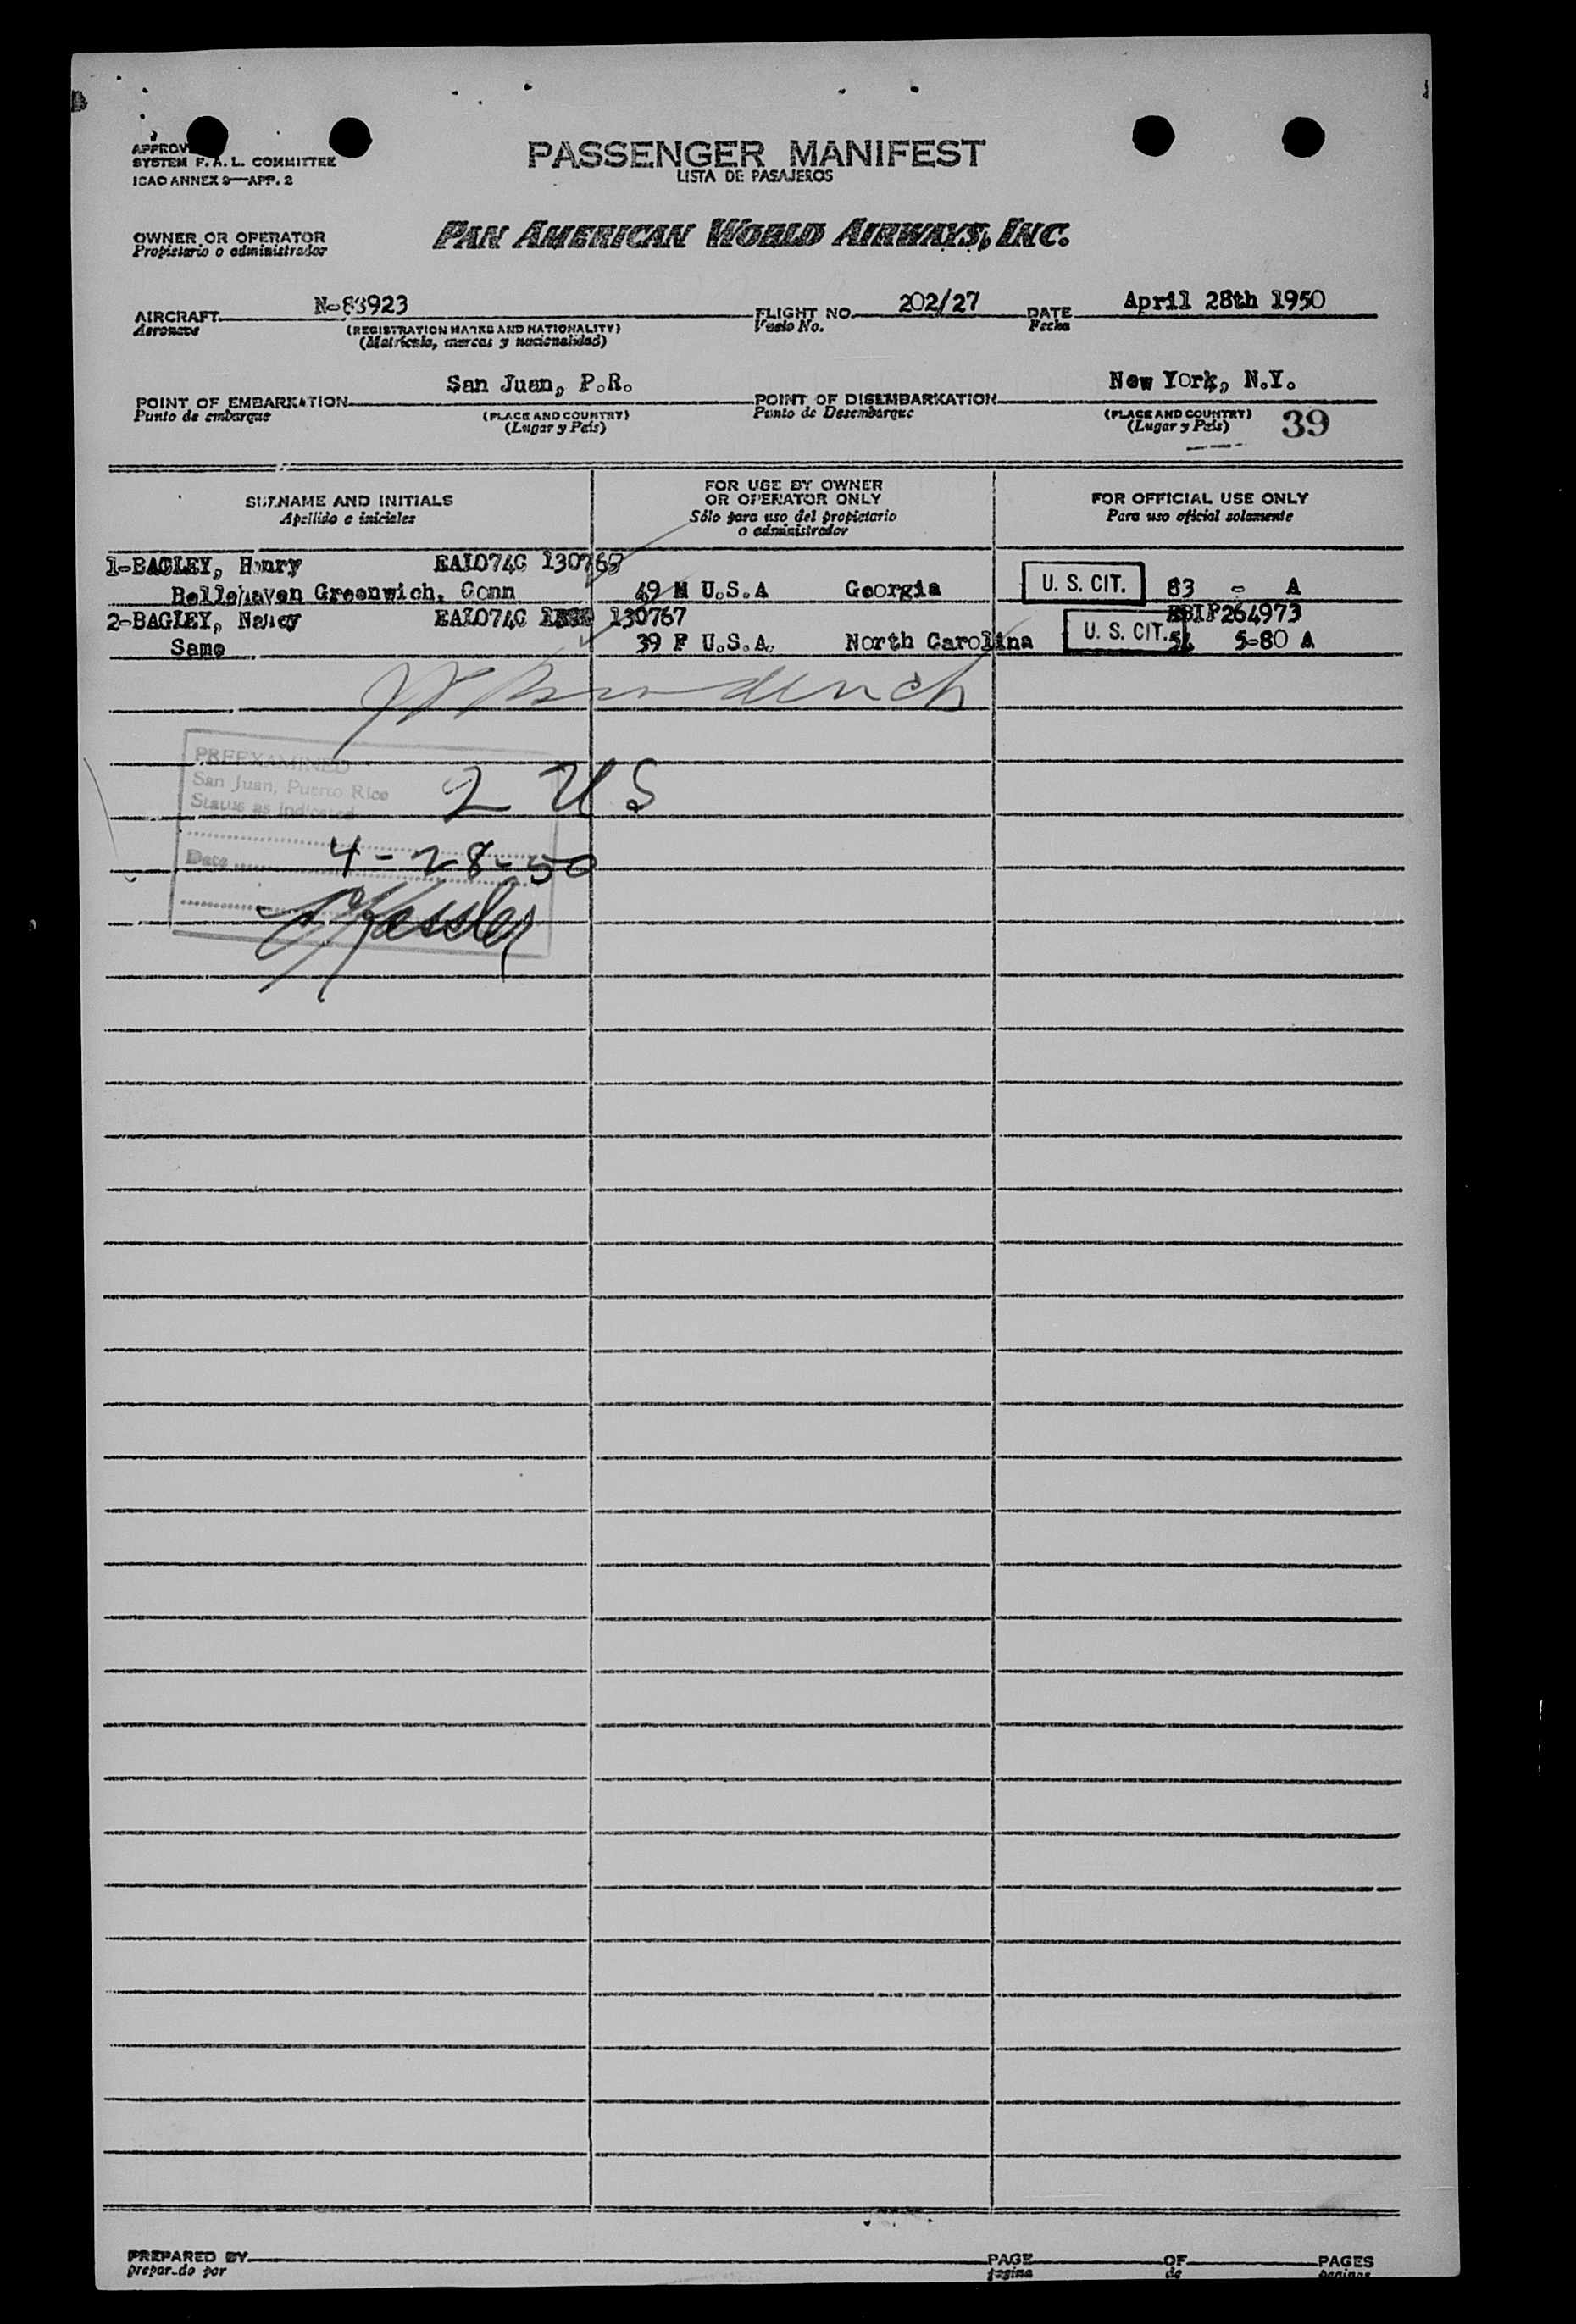 APPROV
SYSTEM F.A.L. COMMITTEE
ICAO ANNEX 9—APP. 2
PASSENGER MANIFEST
LISTA DE PASAJEROS
OWNER OR OPERATOR
Propietario o administrador
PAN AMERICAN WORLD AIRWAYS, INC.
AIRCRAFT N-83923 FLIGHT NO. 202/27 DATE April 28th 1950
Aeronave (REGISTRATION MARKS AND NATIONALITY) Vuelo No. Fecha
(Matrícula, marcas y nacionalidad)
POINT OF EMBARKATION San Juan, P.R. POINT OF DISEMBARKATION New York, N.Y.
Punto de embarque (PLACE AND COUNTRY) Punto de Desembarque (PLACE AND COUNTRY)
(Lugar y País) (Lugar y País) 39
SURNAME AND INITIALS FOR USE BY OWNER OR OPERATOR ONLY FOR OFFICIAL USE ONLY
Apellido e iniciales Sólo para uso del propietario o administrador Para uso oficial solamente
1-BAGLEY, Henry EAL074C 130765
Bellehaven Greenwich, Conn 49 M U.S.A Georgia U. S. CIT. 83 - A
2-BAGLEY, Nancy EAL074C 130767 264973
Same 39 F U.S.A. North Carolina U. S. CIT. 5-80 A
PREEXAMINED
San Juan, Puerto Rico
Status as indicated
2 US
Date 4-28-50
Kessler
PREPARED BY PAGE OF PAGES
preparado por pagina de paginas